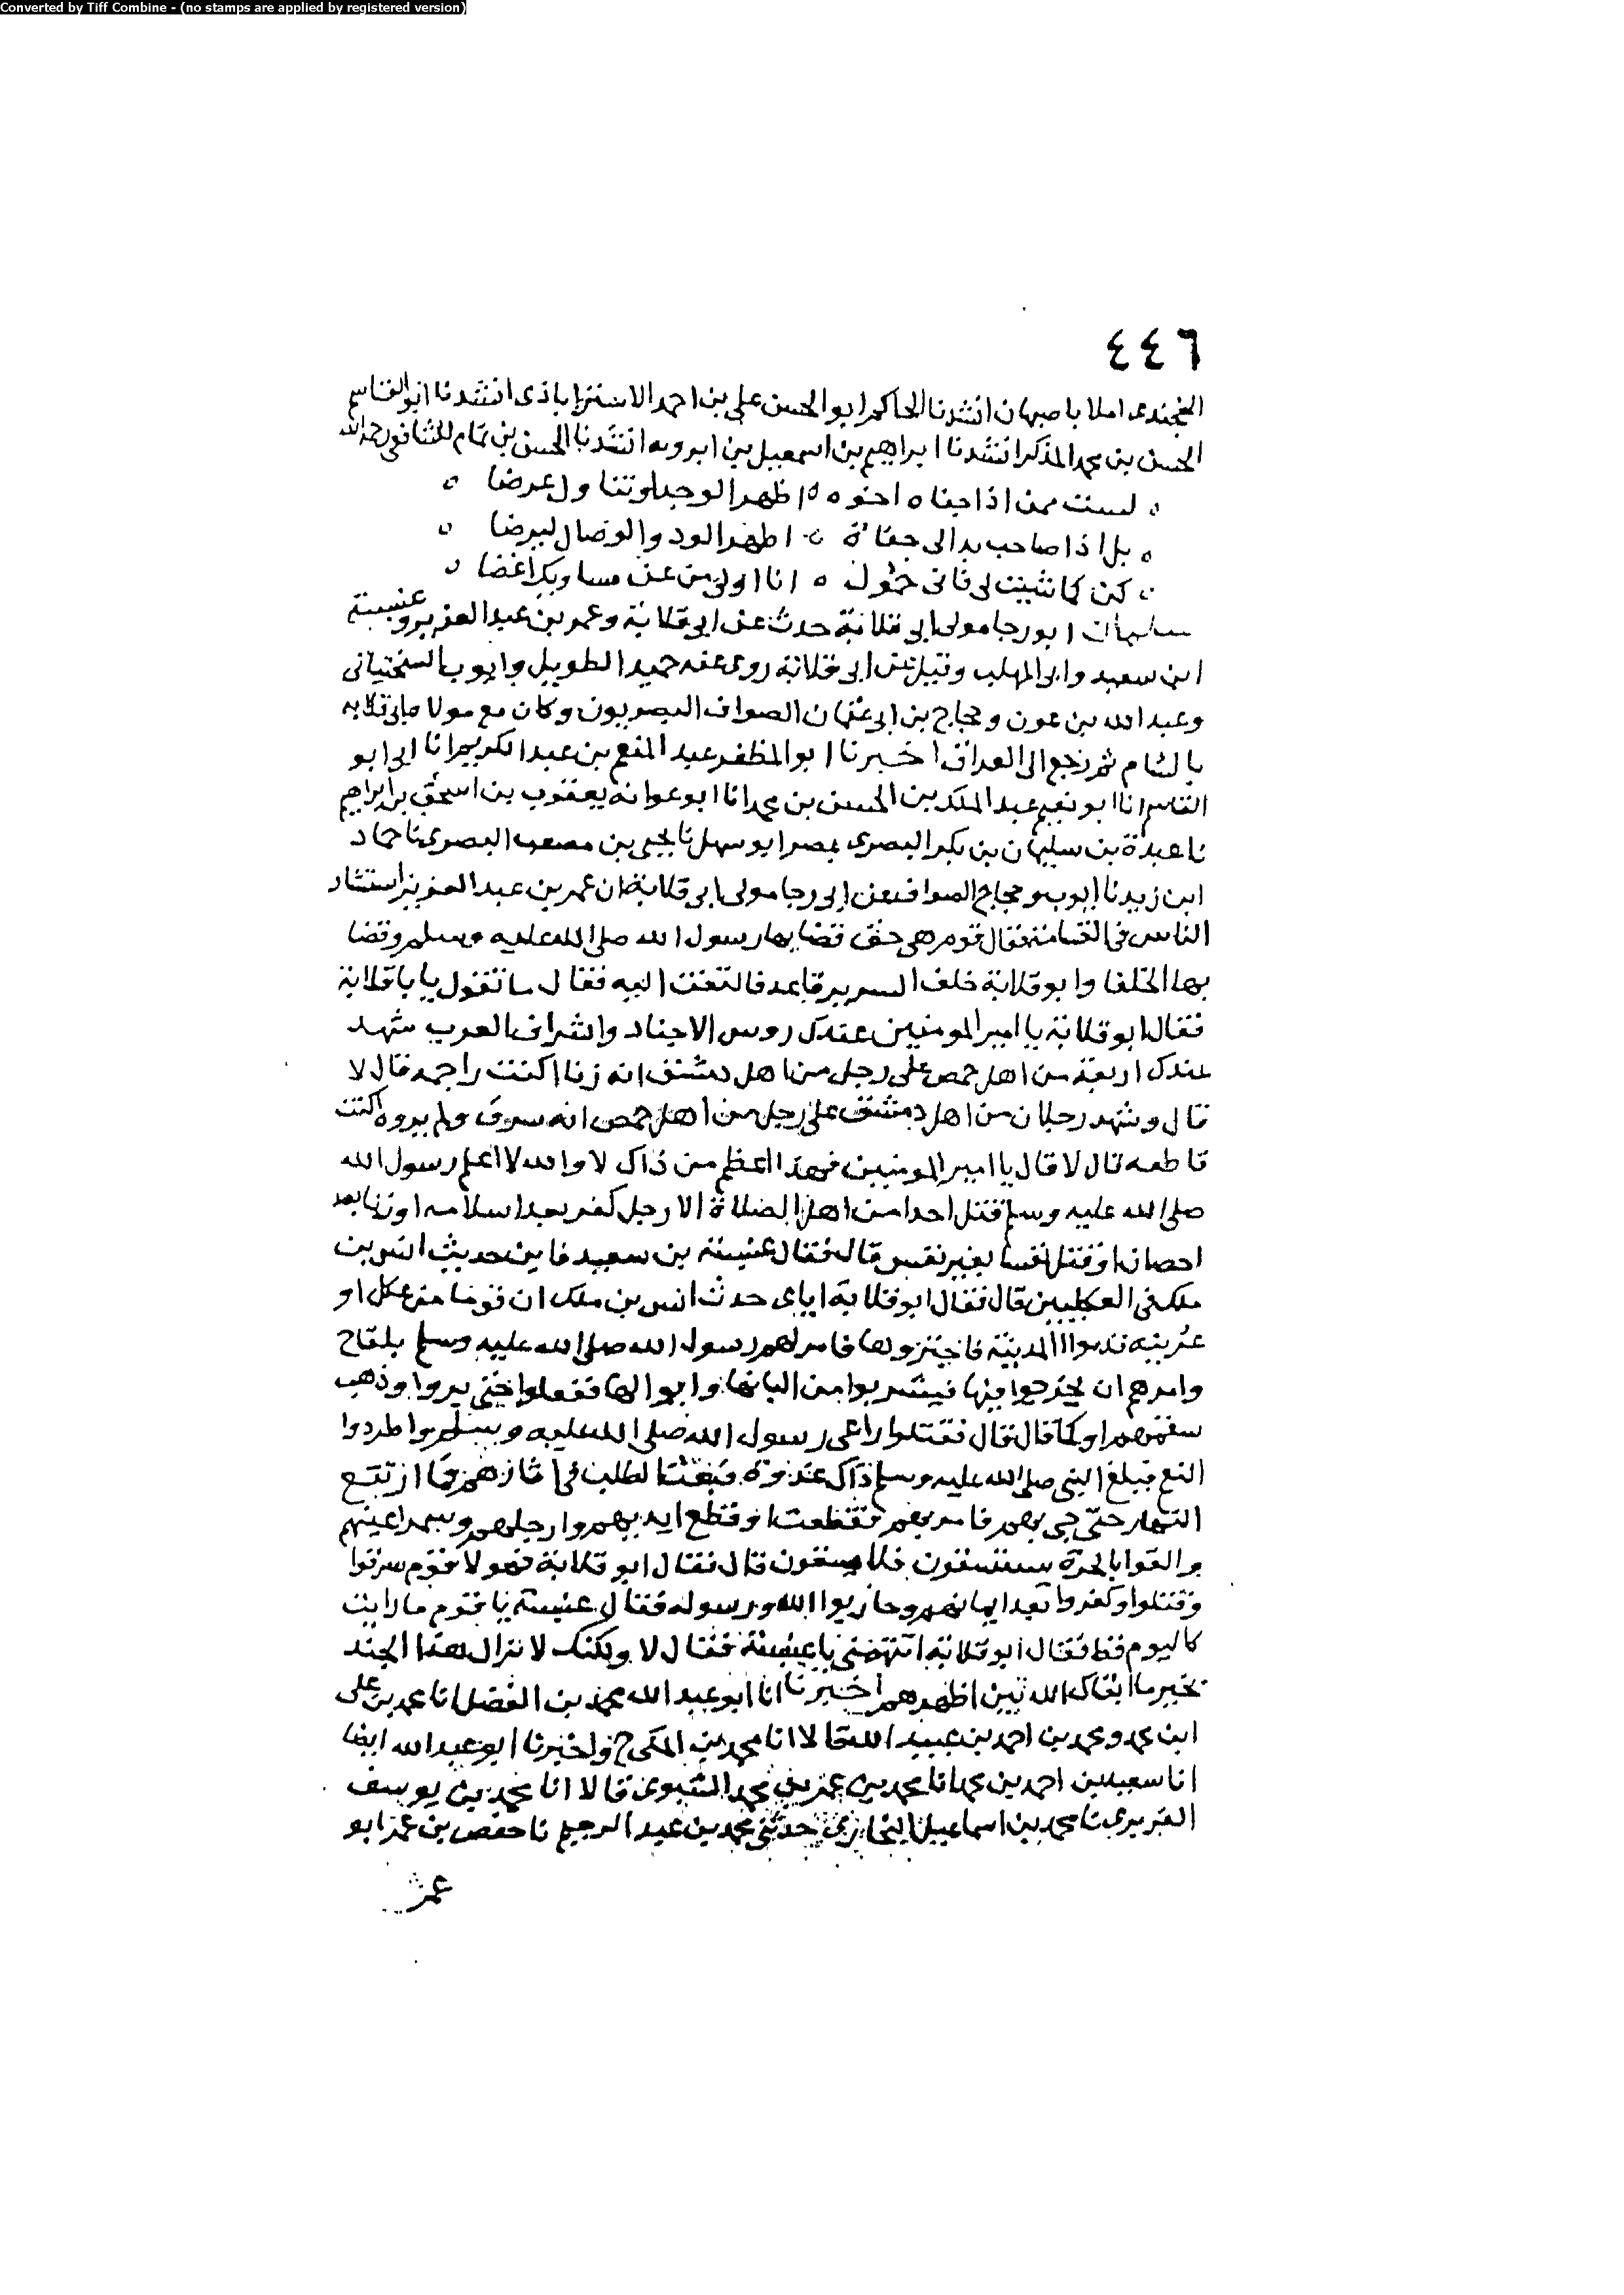 Converted by Tiff Combine - (no stamps are applied by registered version)
٤٤٦
الخجندى املا باصبهان انشدنا الحاكم ابو الحسن على بن احمد الاسترابادى انشدنا ابو القاسم
الحسن بن محمد المذكر انشدنا ابراهيم بن اسمعيل بن ابرويه انشدنا الحسن بن تمام للشافعى رحمه الله
لست ممن اذا جفاه اخوه اظهر الوجد او تناول عرضا
بل اذا صاحب بدالى جفاة اظهر الود والوصال ليرضا
كن كما شيت لى فانى حمول انا اولى من عن مساويك اغضا
سليمان ابو رجا مولى ابى قلابة حدث عن ابى قلابة وعمر بن عبد العزيز وعنبسة
ابن سعيد وابى المهلب وقيل عن ابى قلابة روى عنه حميد الطويل وايوب السختيانى
وعبد الله بن عون وحجاج بن ابى عثمان الصواف البصريون وكان مع مولاه ابى قلابه
بالشام ثم رجع الى العراق اخبرنا ابو المظفر عبد المنعم بن عبد الكريم انا ابى ابو
القاسم انا ابو نعيم عبد الملك بن الحسن بن محمد انا ابو عوانه يعقوب بن اسحق بن ابراهيم
نا عبدة بن سليمان بن بكر البصرى بمصر ابو سهل نا يحيى بن مصعب البصرى نا حماد
ابن زيد نا ايوب وحجاج الصواف عن ابى رجا مولى ابى قلابة ان عمر بن عبد العزيز استشار
الناس فى القسامة فقال قوم هى حق قضا بها رسول الله صلى الله عليه وسلم وقضا
بها الخلفا وابو قلابة خلف السرير قاعد فالتفت اليه فقال ما تقول يا با قلابة
فقال ابو قلابة يا امير المومنين عندك روس الاجناد واشراف العرب شهد
عندك اربعة من اهل حمص على رجل من اهل دمشق انه زنا اكنت راجمه قال لا
قال وشهد رجلان من اهل دمشق على رجل من اهل حمص انه سرق ولم يروه اكنت
قاطعه قال لا قال يا امير المومنين فهذا اعظم من ذاك لا والله لا اعلم رسول الله
صلى الله عليه وسلم قتل احدا من اهل الصلاة الا رجل كفر بعد اسلامه او زنا بعد
احصان او قتل نفسا بغير نفس قال فقال عنبسة بن سعيد فاين حديث انس بن
ملك فى العكليين قال فقال ابو قلابة اياى حدث انس بن ملك ان قوما من عكل او
عرينيه قدموا المدينة فاجتووها فامر لهم رسول الله صلى الله عليه وسلم بلقاح
وامرهم ان يخرجوا فيها فيشربوا من البانها وابوالها ففعلوا حتى بروا وذهب
سقمهم او كما قال قال فقتلوا راعى رسول الله صلى الله عليه وسلم واطردوا
النعم فبلغ النبى صلى الله عليه وسلم ذاك غدوة فبعث الطلب فى اثارهم فما ارتفع
النهار حتى جى بهم فامر بهم فقطعت او قطع ايديهم وارجلهم وسمر اعينهم
والقوا بالحرة يستسقون فلا يسقون قال فقال ابو قلابة فهولا قوم سرقوا
وقتلوا وكفروا بعد ايمانهم وحاربوا الله ورسوله فقال عنبسة يا قوم ما رايت
كاليوم قط فقال ابو قلابة اتتهمنى يا عنبسة فقال لا ولكنك لا تزال هذا الجند
بخير ما ابقاك الله بين اظهرهم اخبرنا انا ابو عبد الله محمد بن الفضل انا محمد بن على
ابن محمد ومحمد بن احمد بن عبيد الله قالا انا محمد بن المكى ح واخبرنا ابو عبد الله ايضا
انا سعيد بن احمد بن محمد انا محمد بن عمر بن محمد الشبوى قالا انا محمد بن يوسف
الفربرى نا محمد بن اسماعيل البخارى حدثنى محمد بن عبد الرحيم نا حفص بن عمر ابو
عمر